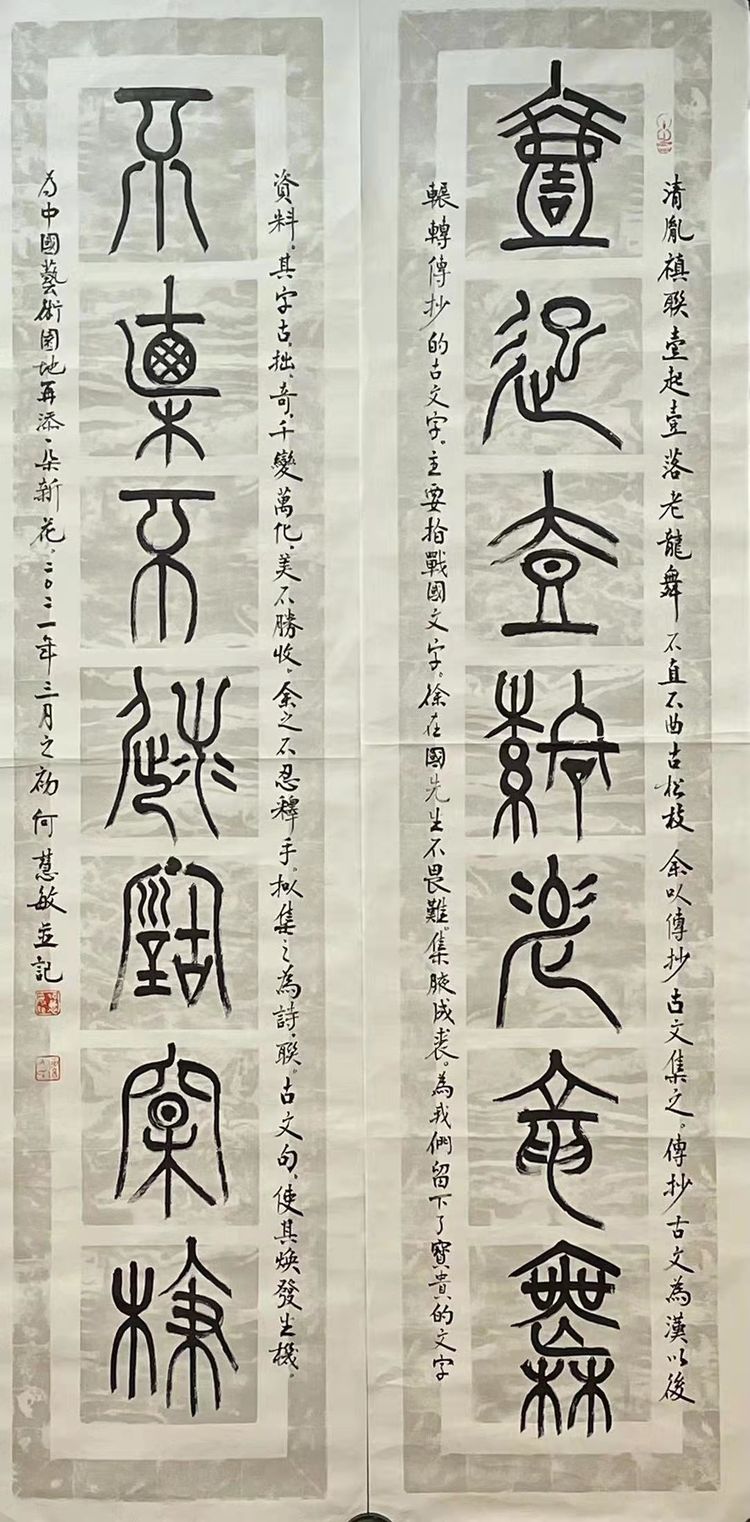 壹起壹落老龍舞
清胤禛聯壹起壹落老龍舞不直不曲古松枝余以傳抄古文集之。傳抄古文為漢以後
輾轉傳抄的古文字。主要指戰國文字。徐在國先生不畏難。集腋成裘。為我們留下了寶貴的文字
不直不曲古松枝
資料。其字古、拙、奇、千變萬化、美不勝收。余之不忍釋手。拟集之為詩、聯。古文句、使其焕發生機。
为中國藝術園地再添一朵新花。二〇二一年三月之初何慧敏並記